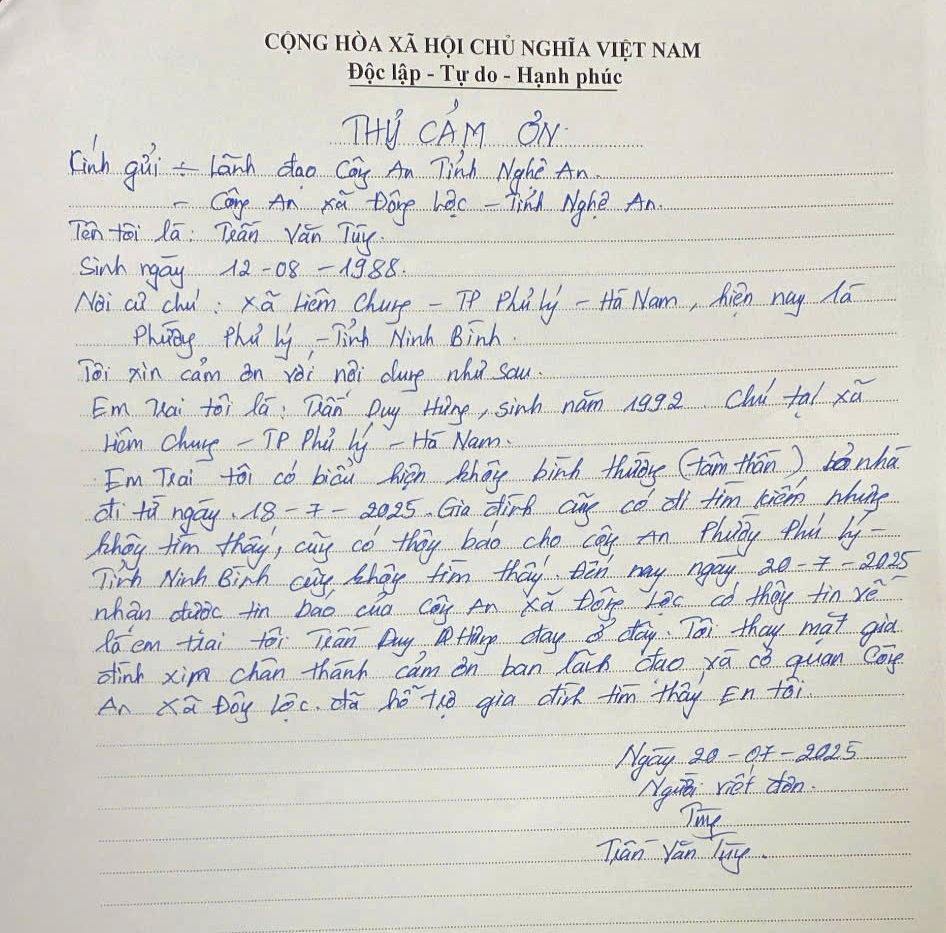 CỘNG HÒA XÃ HỘI CHỦ NGHĨA VIỆT NAM
Độc lập - Tự do - Hạnh phúc
THƯ CẢM ƠN
Kính gửi ÷ Lãnh đạo Công An Tỉnh Nghệ An.
- Công An xã Đông Lộc - Tỉnh Nghệ An.
Tên tôi là: Trần Văn Tùng.
Sinh ngày 12-08-1988.
Nơi cư chú: xã Liêm Chung - TP Phủ Lý - Hà Nam, hiện nay là
Phường Phủ Lý - Tỉnh Ninh Bình.
Tôi xin cảm ơn với nội dung như sau.
Em trai tôi là: Trần Duy Hưng, sinh năm 1992. Chú tại xã
Liêm Chung - TP Phủ Lý - Hà Nam.
Em Trai tôi có biểu hiện không bình thường (tâm thần) bỏ nhà
đi từ ngày 18-7-2025. Gia đình cũng có đi tìm kiếm nhưng
không tìm thấy, cũng có thông báo cho công An Phường Phủ Lý -
Tỉnh Ninh Bình cũng không tìm thấy. Đến nay ngày 20-7-2025
nhận được tin báo của Công An xã Đông Lộc có thông tin về
là em trai tôi Trần Duy Hưng đang ở đây. Tôi thay mặt gia
đình xim chân thành cảm ơn ban lãnh đạo và cơ quan Công
An xã Đông Lộc. đã hỗ trợ gia đình tìm thấy Em tôi.
Ngày 20-07-2025
Người viết đơn.
Tùng
Trần Văn Tùng.